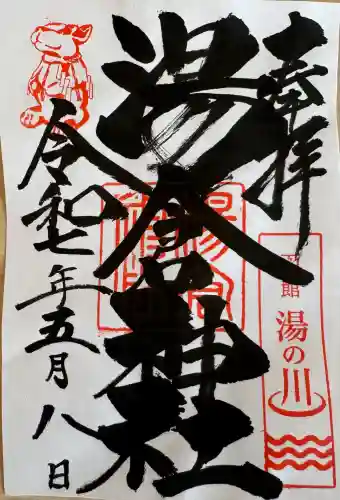 奉拝
湯倉神社
令和七年五月八日
函館
湯の川